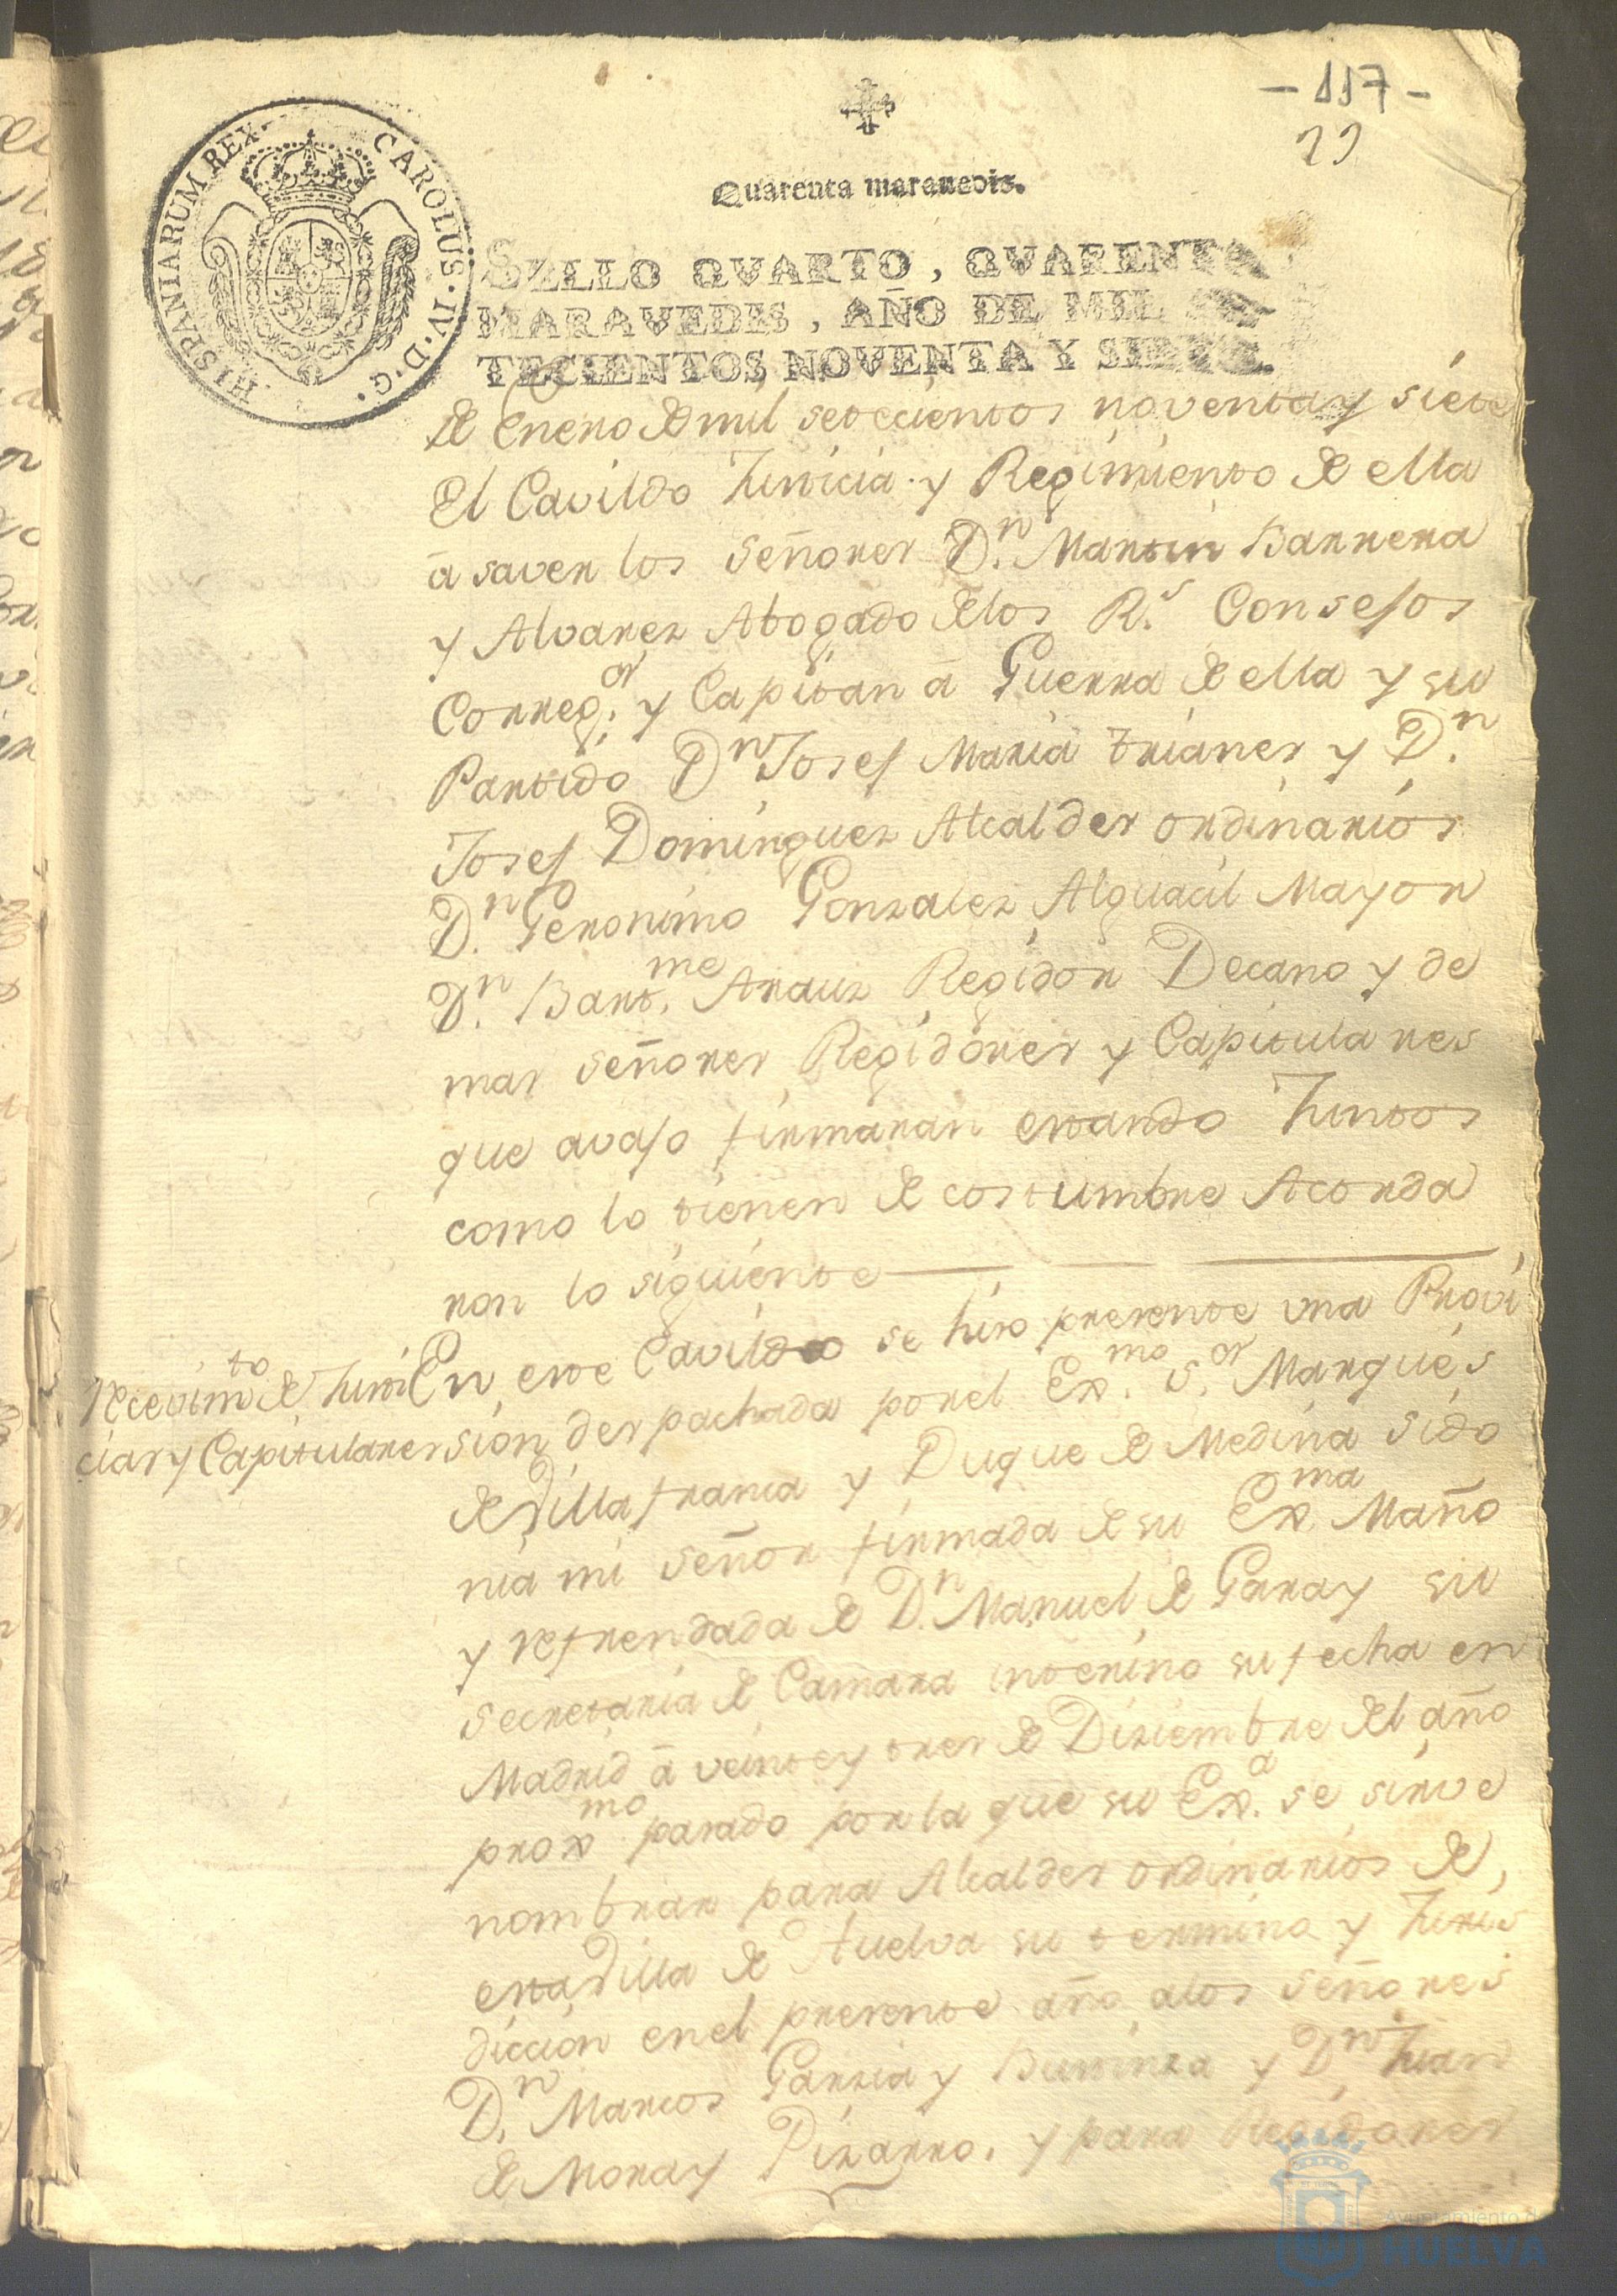 - 117 -
29
Quarenta maravedis.
HISPANIARUM REX CAROLUS · IV · D · G ·
SELLO QVARTO, QVARENTA
MARAVEDIS, AÑO DE MIL SE-
TECIENTOS NOVENTA Y SIETE.
de Enero de mil setecientos noventa y siete
El Cavildo Justicia y Regimiento de ella
á saver los señores Dn. Martin Barrera
y Alvarez Abogado de los Rs. Consejos
Correg.or y Capitan á Guerra de ella y su
Partido Dn Josef Maria trianes y Dn.
Josef Dominguez Alcaldes ordinarios
Dn. Geronimo Gonzalez Alguacil Mayor
Dn. Bart.me Arauz Regidor Decano y de
mas señores Regidores y Capitulares
que avajo firmaran estando Juntos
como lo tienen de costumbre Acorda
ron lo siguiente
Recevimto de Justi
cias y Capitulares
En este Cavildo se hizo presente una Provi
sion despachada por el Ex.mo S.or Marqués
de Villafranca y Duque de Medina Sido
nia mi señor firmada de su Ex.ma Maño
y refrendada de Dn. Manuel de Garay su
secretaria de Camara interino su fecha en
Madrid á veinte y tres de Diziembre del año
proxmo pasado por la que su Ex.a se sirve
nombrar para Alcaldes ordinarios de
esta Villa de Huelva su termino y Juris
diccion en el presente año a los señores
Dn. Marcos Garzia y y Dn Juan
de Mora y Pizarro. y para Regidores
Ayuntamiento de
HUELVA